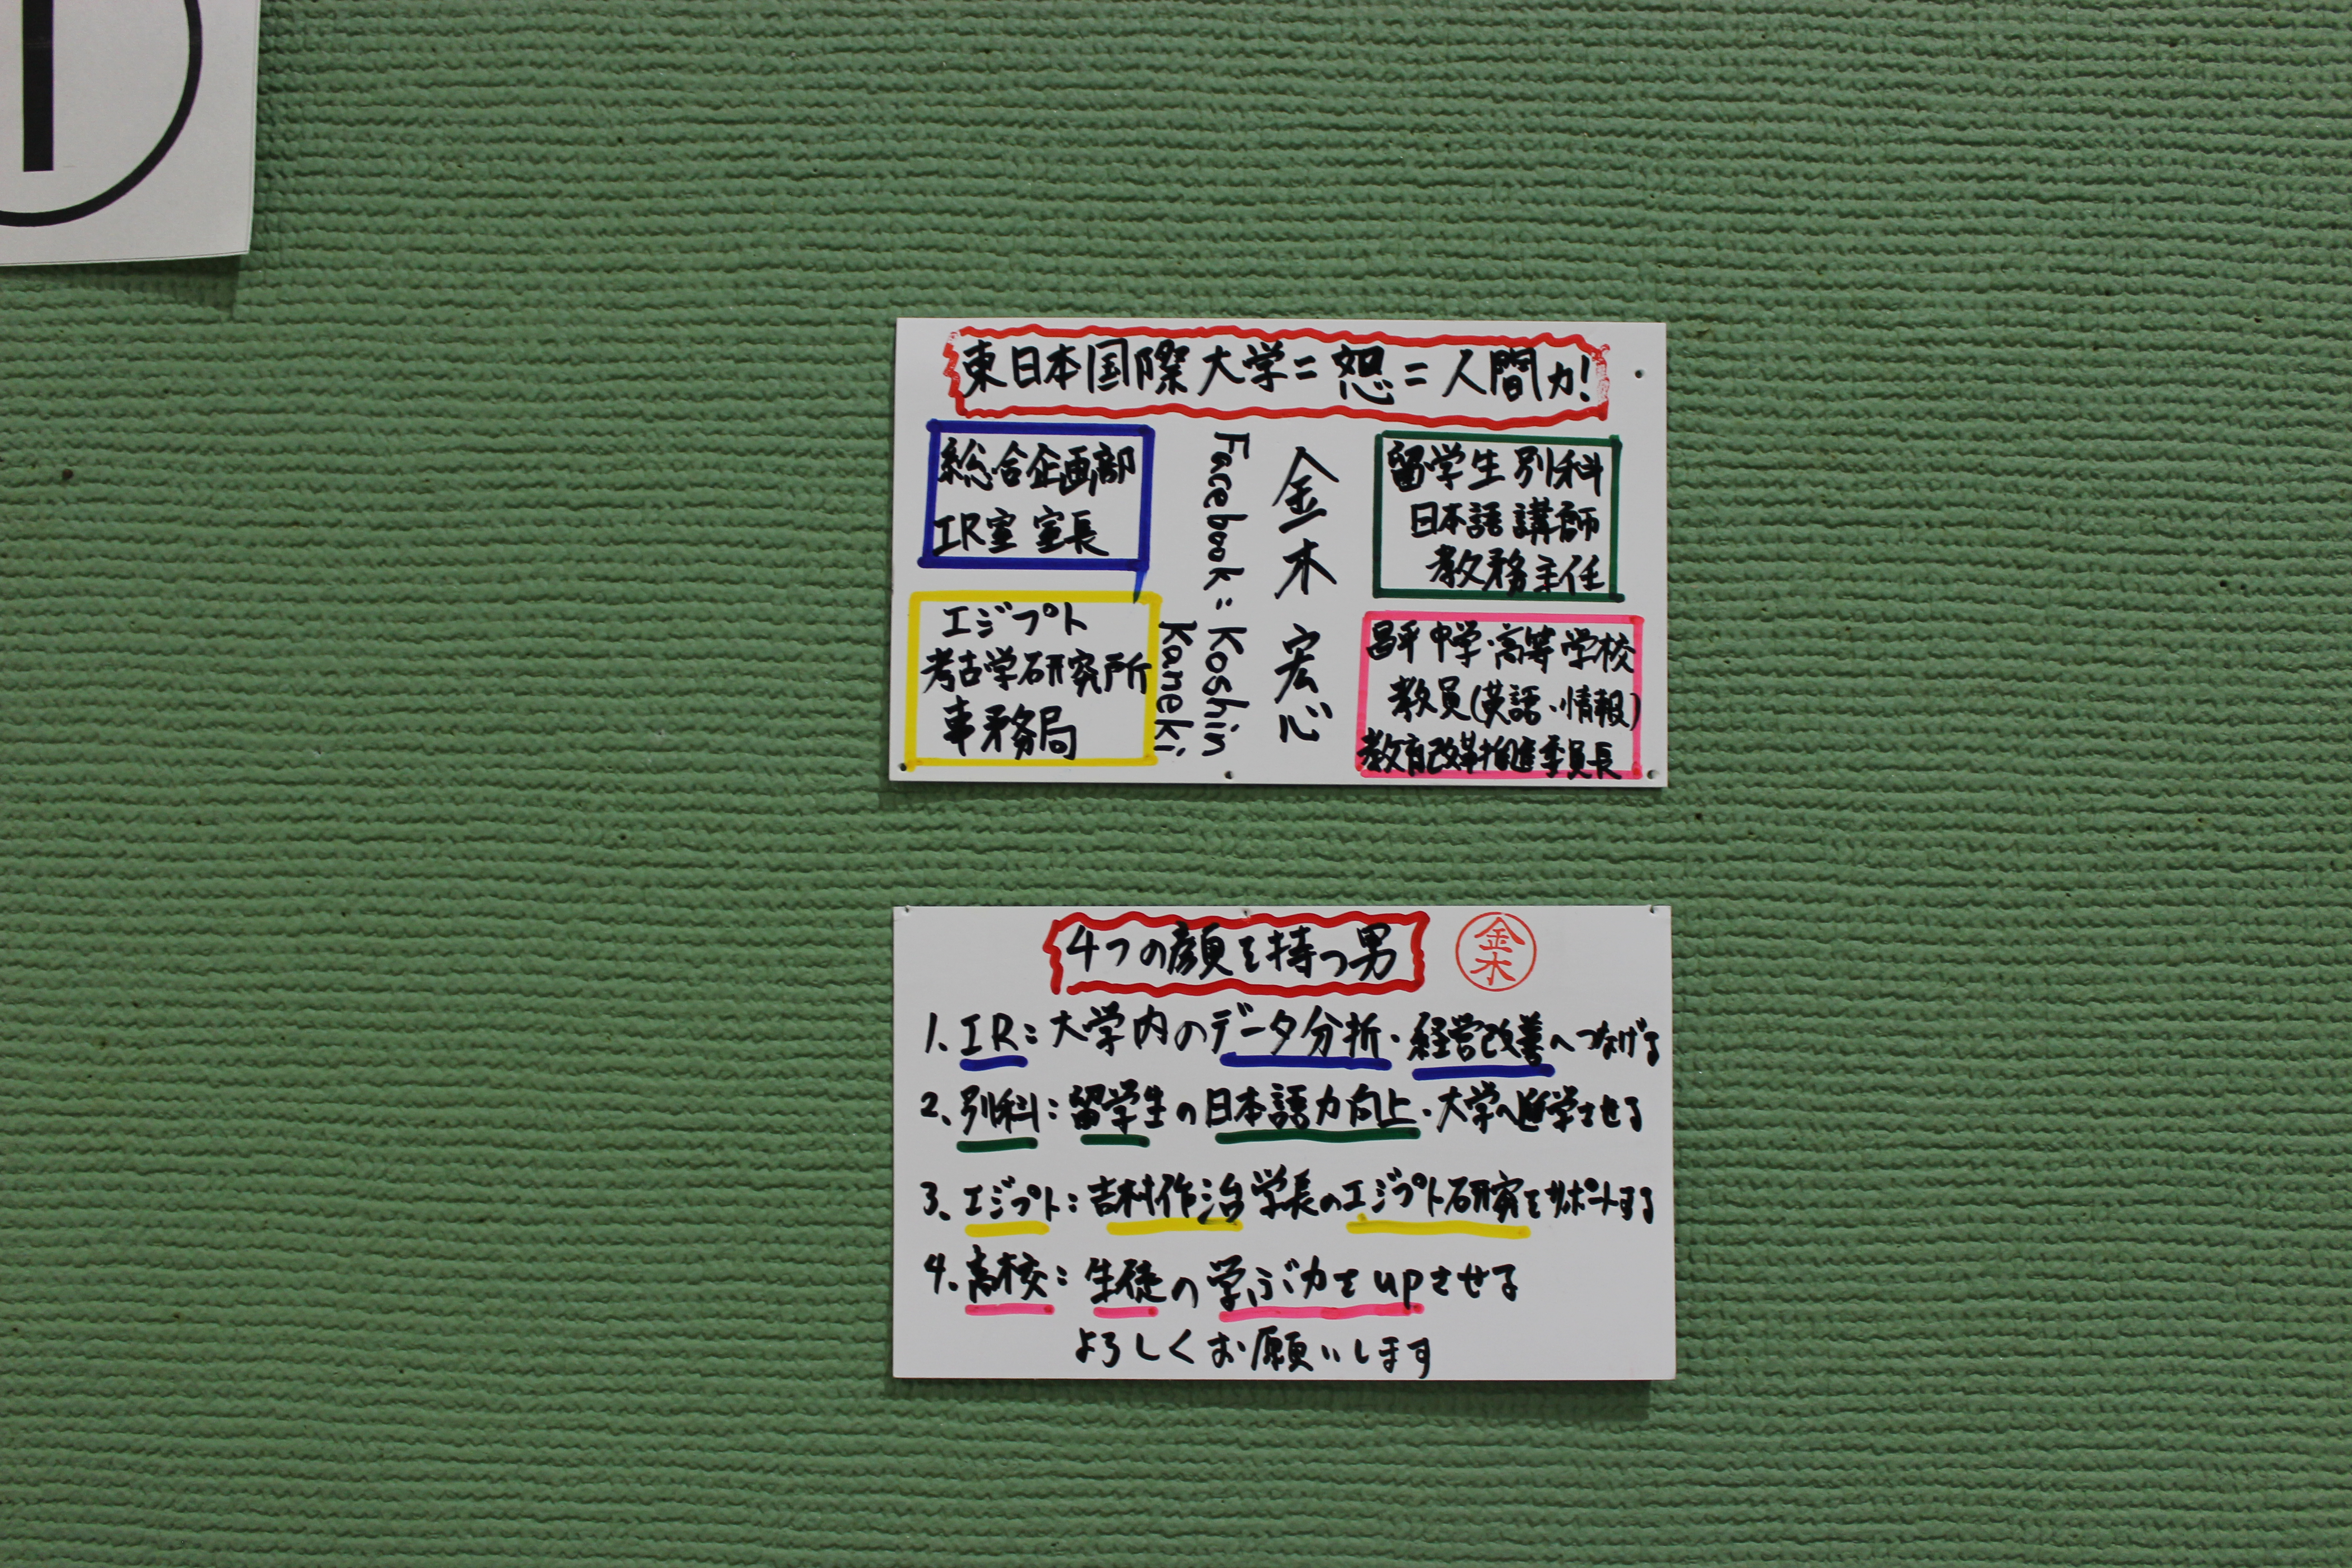 1
東日本国際大学=恕=人間力!
留学生別科
日本語講師
教務主任
昌平中学・高等学校
教員(英語・情報)
教育改革推進委員長
金木宏心
Facebook: Koshin
Kaneki
総合企画部
IR室 室長
エジプト
考古学研究所
事務局
4つの顔を持つ男
金木
1. IR: 大学内のデータ分析・経営改善へつなげる
2. 別科: 留学生の日本語力向上・大学へ進学させる
3. エジプト: 吉村作治学長のエジプト研究をサポートする
4. 高校: 生徒の学ぶ力をupさせる
よろしくお願いします